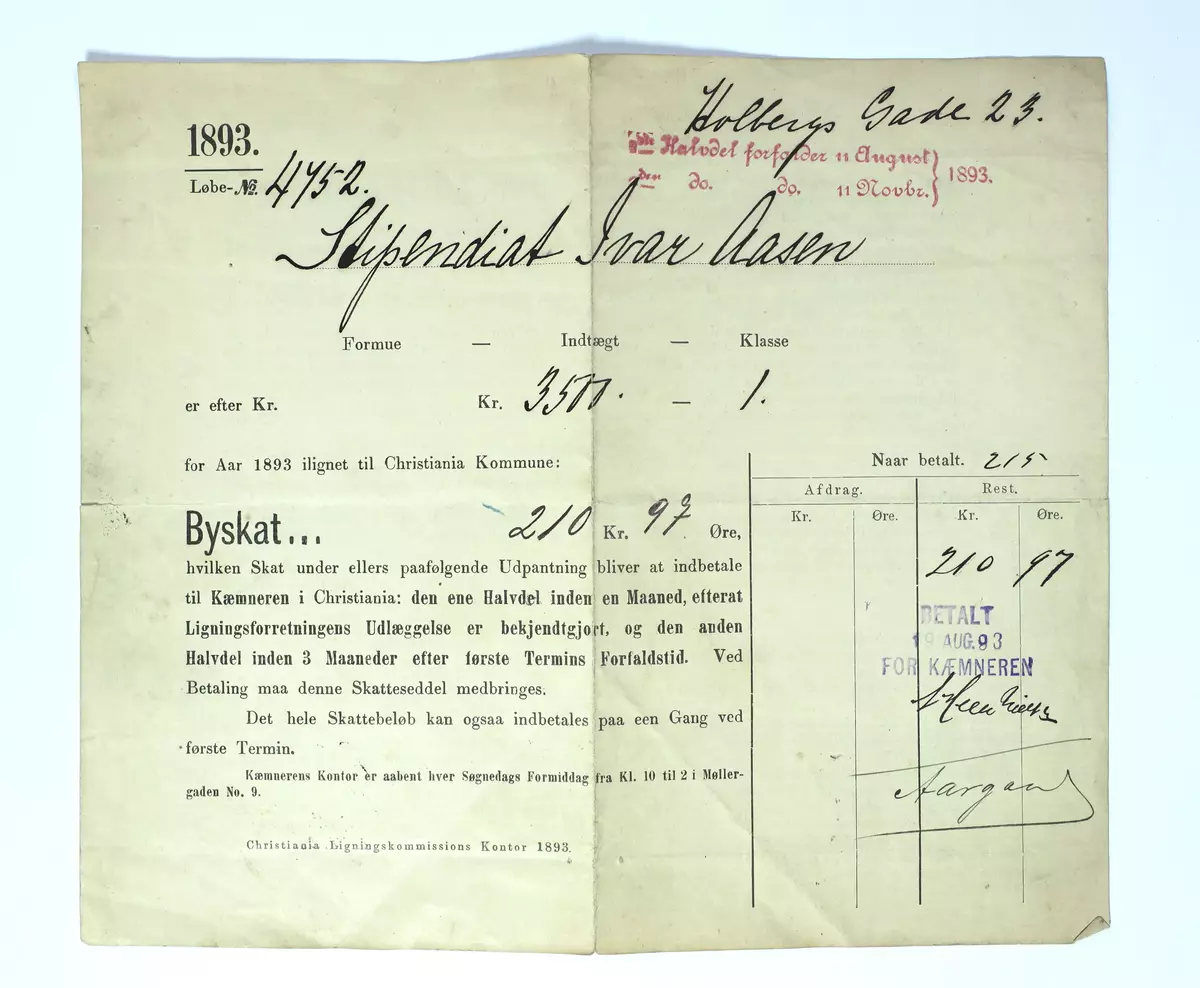 Holbergs Gade 23.
1893.
Halvdel forfalder 11 August
den do. do. 11 Novbr. } 1893.
Løbe-No. 4752.
Stipendiat Ivar Aasen
Formue — Indtægt — Klasse
er efter Kr. Kr. 3500. — 1.
for Aar 1893 ilignet til Christiania Kommune:
Byskat... 210 Kr. 97 Øre,
hvilken Skat under ellers paafølgende Udpantning bliver at indbetale
til Kæmneren i Christiania: den ene Halvdel inden en Maaned, efterat
Ligningsforretningens Udlæggelse er bekjendtgjort, og den anden
Halvdel inden 3 Maaneder efter første Termins Forfaldstid. Ved
Betaling maa denne Skatteseddel medbringes.
Det hele Skattebeløb kan ogsaa indbetales paa een Gang ved
første Termin.
Kæmnerens Kontor er aabent hver Søgnedags Formiddag fra Kl. 10 til 2 i Møller-
gaden No. 9.
Christiania Ligningskommissions Kontor 1893.
Naar betalt. 215
Afdrag. Rest.
Kr. Øre. Kr. Øre.
210 97
BETALT
19 AUG.93
FOR KÆMNEREN